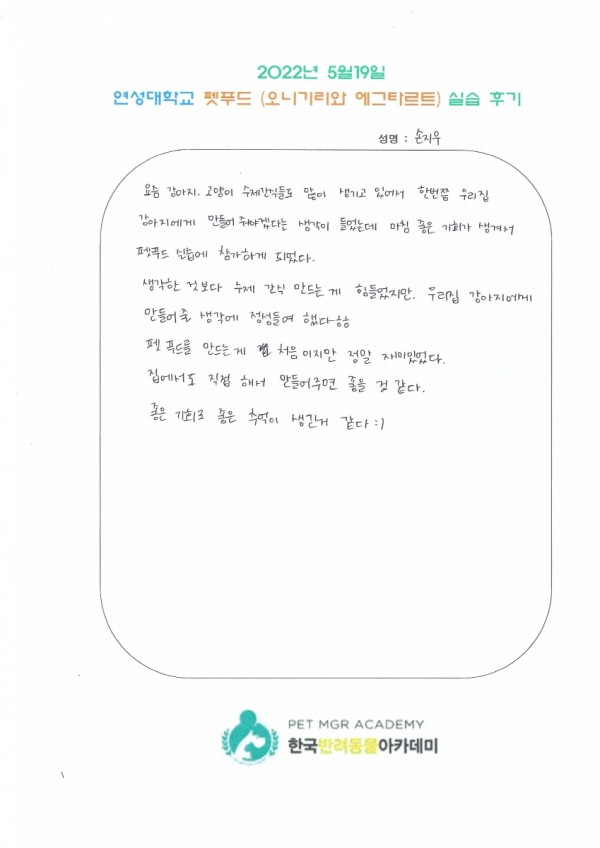 2022년 5월19일
연성대학교 펫푸드 (오니기리와 에그타르트) 실습 후기
성명 : 손지우
요즘 강아지. 고양이 수제간식들도 많이 생기고 있어서 한번쯤 우리집
강아지에게 만들어 줘야겠다는 생각이 들었는데 마침 좋은 기회가 생겨서
펫푸드 실습에 참가하게 되었다.
생각한 것보다 수제 간식 만드는게 힘들었지만. 우리집 강아지에게
만들어줄 생각에 정성들여 했다ㅎㅎ
펫 푸드를 만드는게 처음이지만 정말 재미있었다.
집에서도 직접 해서 만들어주면 좋을 것 같다.
좋은 기회로 좋은 추억이 생긴거 같다 :)
PET MGR ACADEMY
한국반려동물아카데미